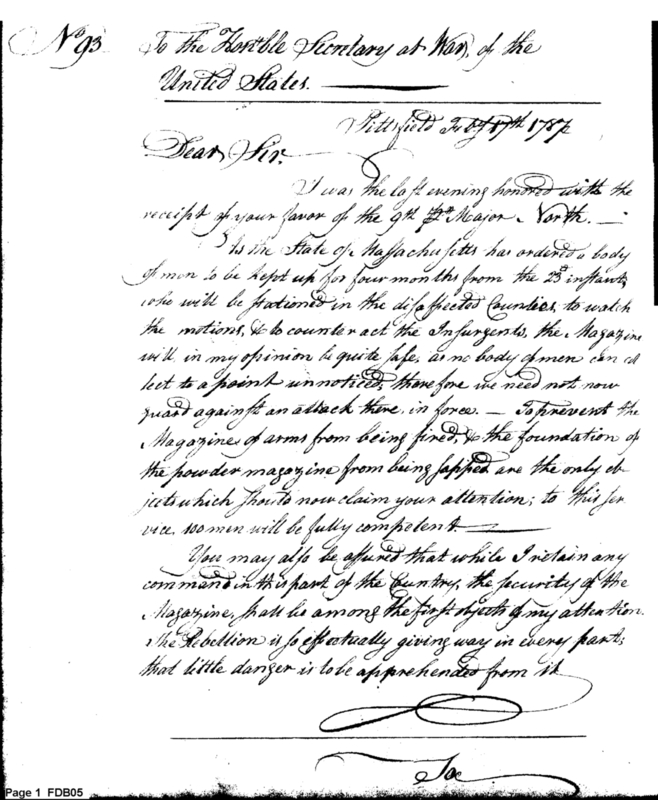 No 93
To the Honble Secretary at War, of the
United States.
Pittsfield Feby 17th 1787
Dear Sir.
I was the last evening honored with the
receipt of your favor of the 9th Major North. —
As the State of Massachusetts has ordered a body
of men to be kept up for four months from the 23d instant,
who will be stationed in the disaffected Counties, to watch
the motions, & to counter act the Insurgents, the Magazine
will in my opinion be quite safe, as no body of men can col
lect to a point unnoticed, therefore we need not now
guard against an attack there, in force. — To prevent the
Magazine of arms from being fired, & the foundation of
the powder magazine from being sapped are the only ob
jects which should now claim your attention; to this ser
vice men will be fully competent. —
You may also be assured that while I retain any
command in this part of the Country, the security of the
Magazine, shall be among the first objects of my attention.
The Rebellion is so effectually giving way in every part,
that little danger is to be apprehended from it
To
Page 1 FDB05